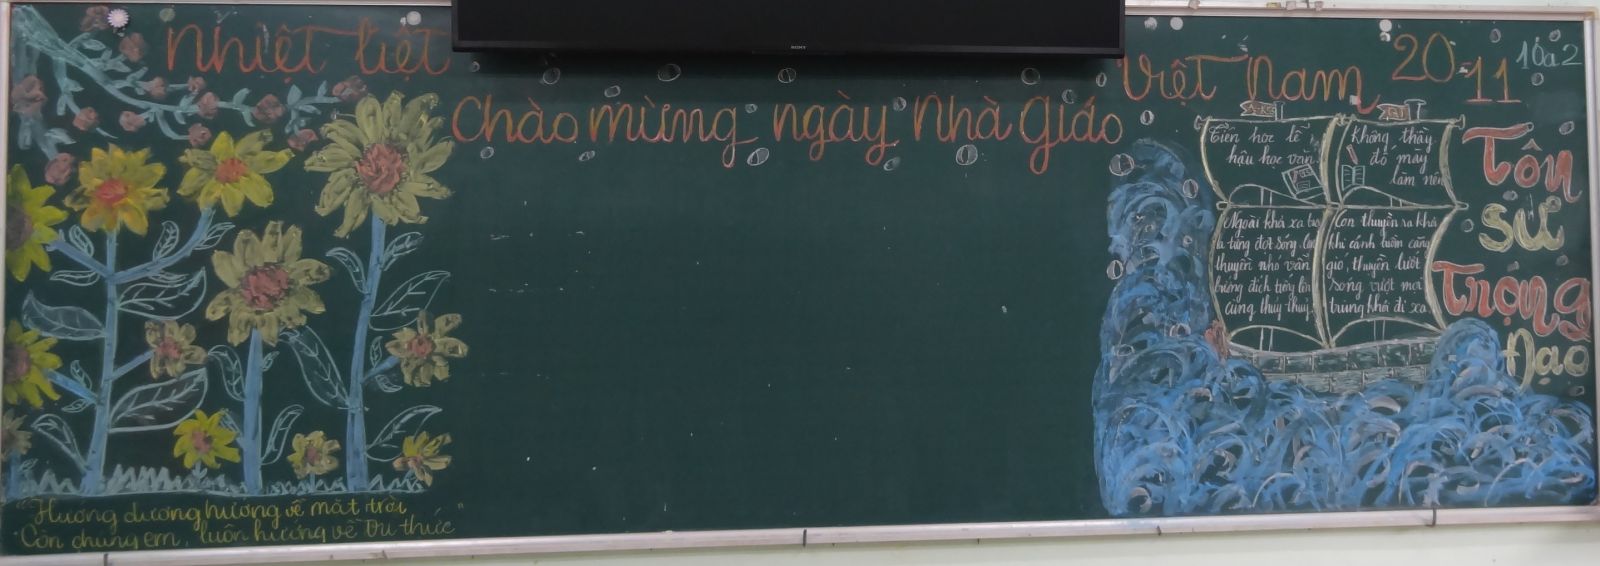 Nhiệt liệt
Chào mừng ngày Nhà Giáo
Việt Nam 20-11
10a2
SONY
Tôn
sư
Trọng
Đạo
Tiên học lễ
hậu học văn
Không thầy
đố mày
làm nên
Ngoài khơi xa
là từng đợt sóng,
thuyền nhỏ vẫn
hướng đích
cùng thủy thủ
Con thuyền ra khơi
khi cánh buồm căng
gió, thuyền lướt
sóng vượt mọi
trùng khơi đi xa
"Hướng dương hướng về mặt trời
Còn chúng em, luôn hướng về tri thức"